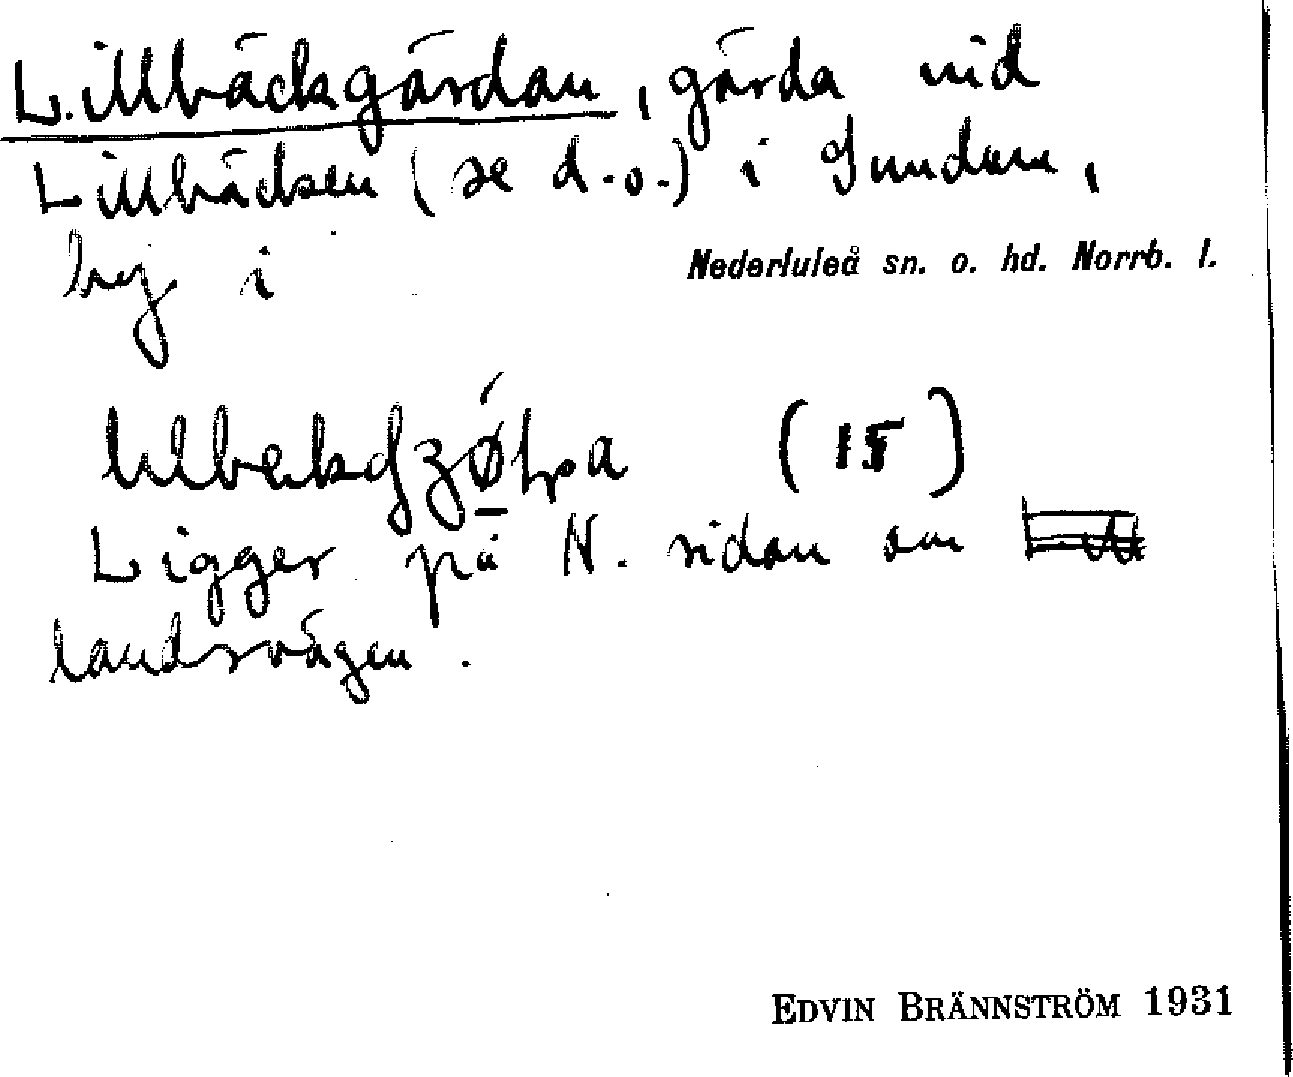 Lillbäckgärdan, gärda vid
Lillbäcken (se d.o.) i Sundom,
by i Nederluleå sn. o. hd. Norrb. l.
(15)
Ligger på N. sidan om
landsvägen.
EDVIN BRÄNNSTRÖM 1931